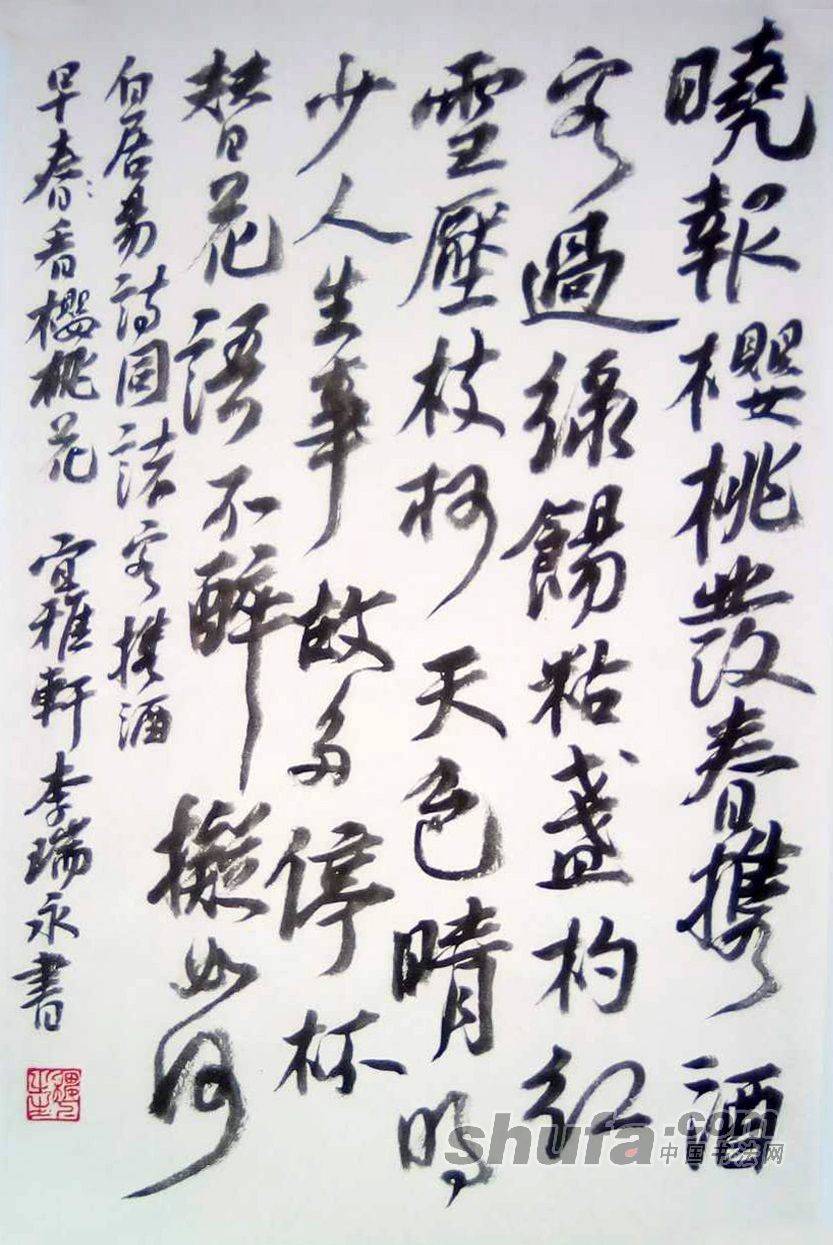 曉報櫻桃發春攜酒
客過綠餳粘盞杓紅
雪壓枝柯天色晴明
少人生事故多停杯
替花語不醉擬如何
白居易詩同諸客攜酒
早春看櫻桃花 宜雅軒李瑞永書
shufa.com
中国书法网